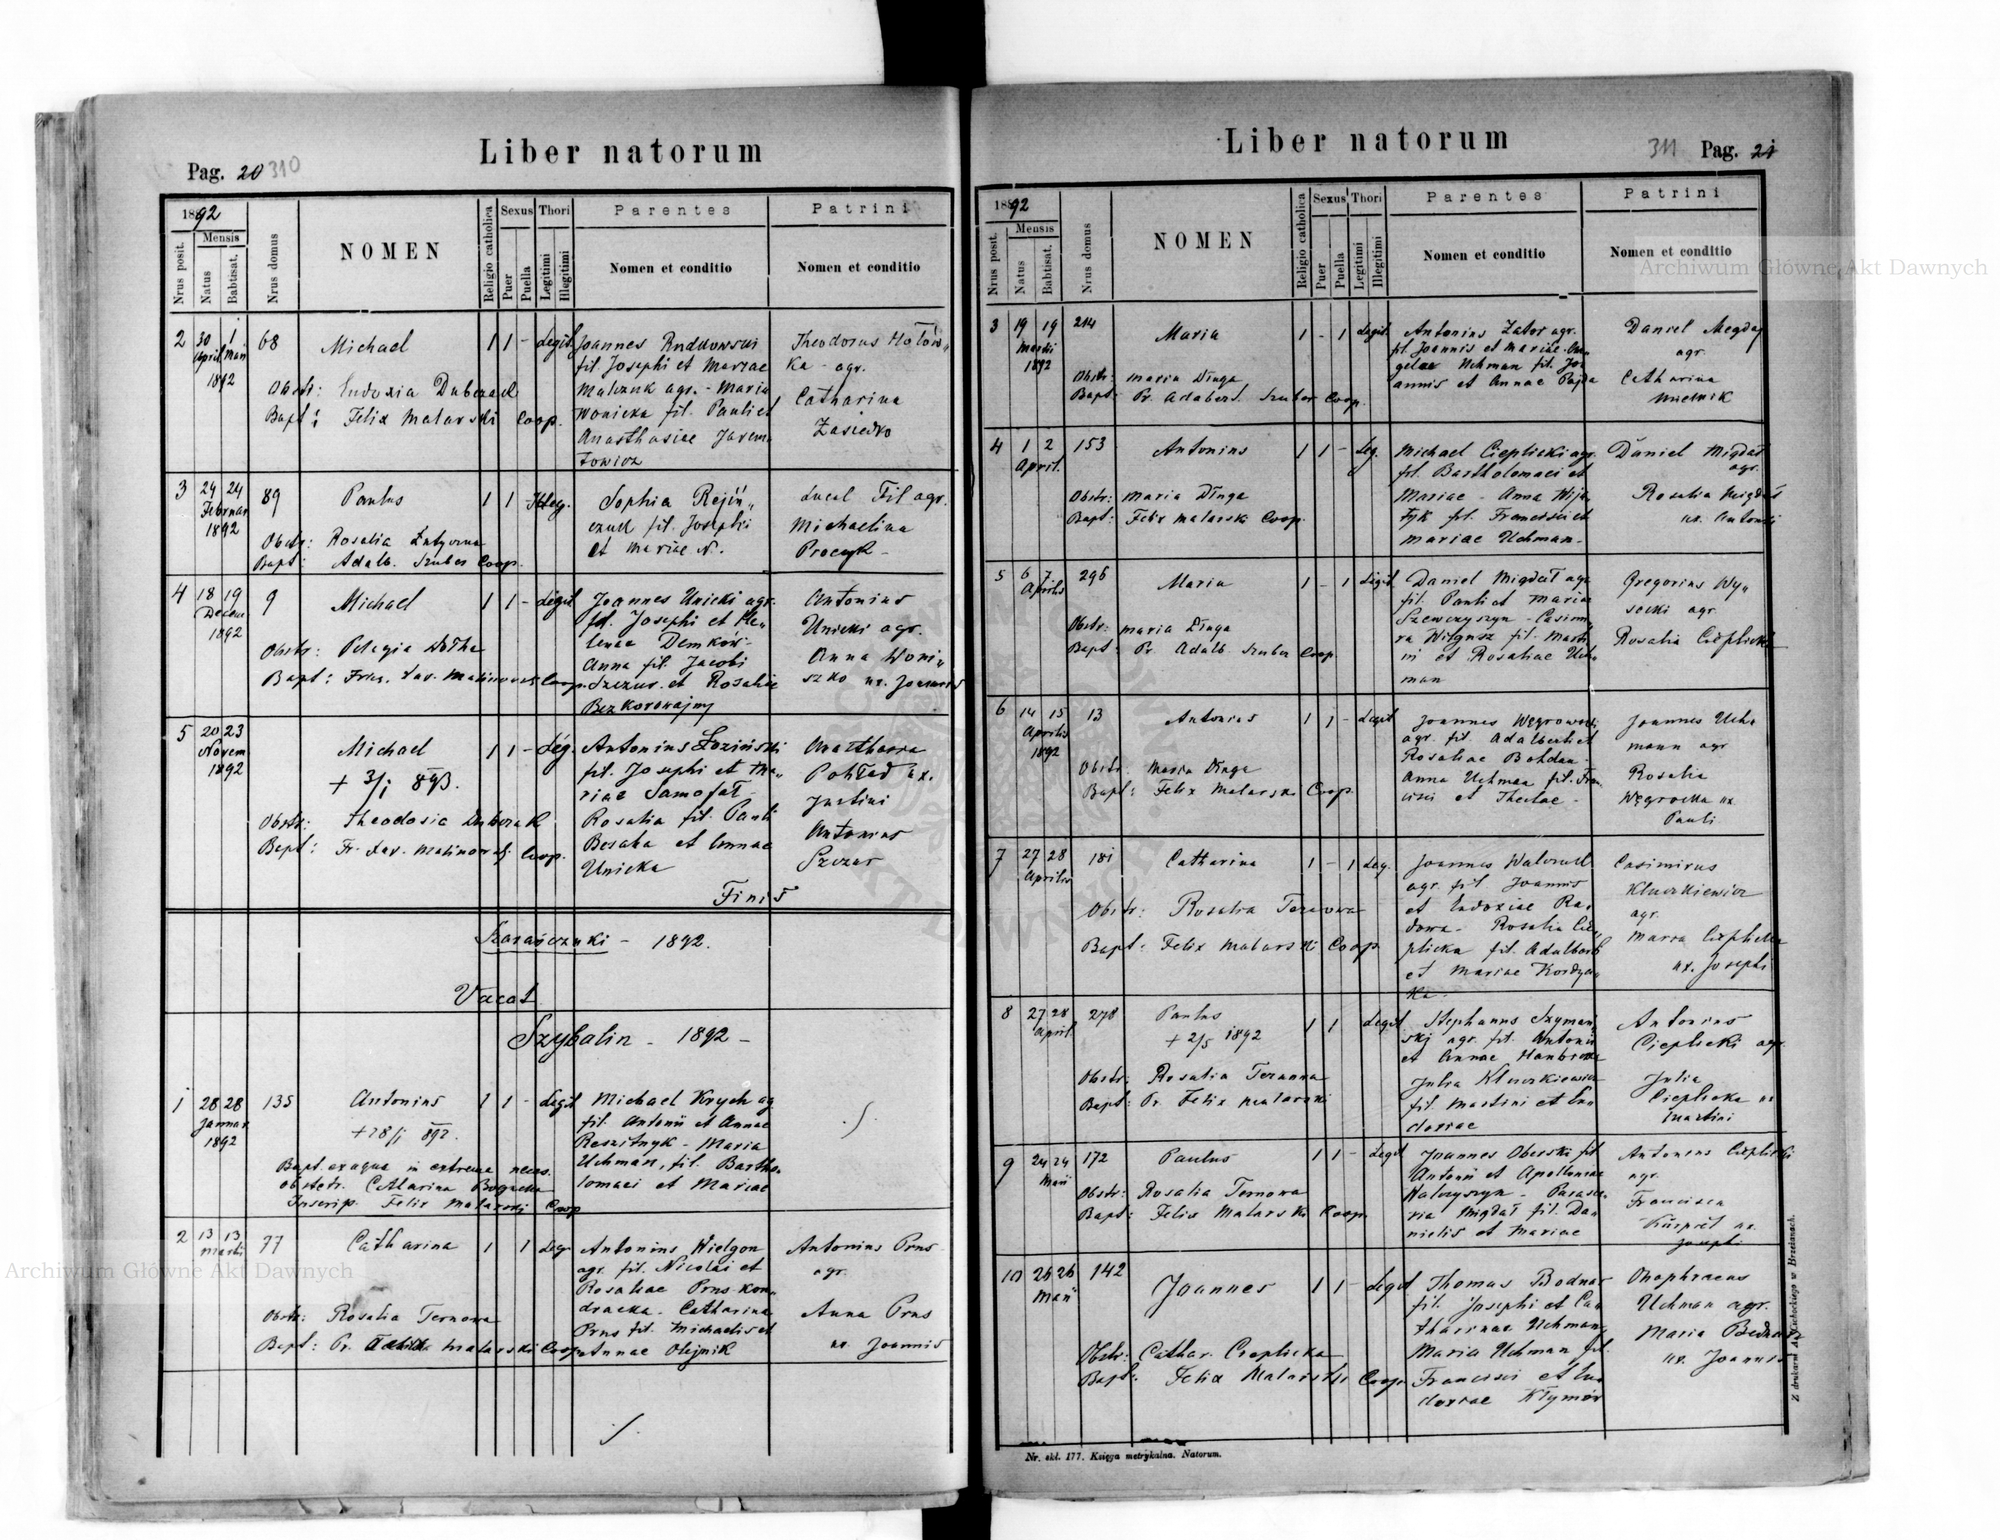 Liber natorum
Pag. 20 310
1892
Mensis
Nrus posit.
Natus
Babtisat.
Nrus domus
NOMEN
Religio catholica
Sexus
Puer
Puella
Thori
Legitimi
Illegitimi
Parentes
Nomen et conditio
Patrini
Nomen et conditio
2 30 1 68 Michael 1 1 - Legit. Joannes
April Maii
1892
fil. Josephi et Mariae
agr. - Maria
fil. Pauli et
Anasthasiae
Theodorus
ka - agr.
Catharina
Obstr: Eudoxia
Bapt: Felix Matarski Coop.
3 24 24 89 Paulus 1 1 - Illeg. Sophia
Februar
1892
fil. Josephi
et Mariae N.
Fil agr.
Michaelina
Obstr: Rosalia
Bapt: Adalb. Szuber Coop.
4 18 19 9 Michael 1 1 - Legit. Joannes Unicki agr.
Decem
1892
fil. Josephi et He„
lenae Demków -
Anna fil. Jacobi
Szczur. et Rosaliae
Bezkorowajny
Antonius
Unicki agr.
Anna Woni„
szko ux. Joannis
Obstr: Pelagia
Bapt: Fran. Xav. Coop.
5 20 23 Michael 1 1 - Leg. Antonius Łoziński
Novem
1892
+ 3/1 893.
fil. Josephi et Ma„
riae Samofał -
Rosalia fil. Pauli
et Annae
Unicka
ux.
Justini
Antonius
Szczur
Obstr: Theodosia Duberak
Bapt: Fr. Xav. Coop.
Finis
Szarańczuki - 1892.
Vacat
Szybalin - 1892 -
1 28 28 135 Antonius 1 1 - Legit Michael Krych ag
Januar
1892
+ 28/1 892.
fil. Antonii et Annae
Reszitnyk - Maria
Uchman, fil. Bartho„
lomaei et Mariae
Bapt. ex aqua in extrema neces.
obstetr. Catharina
Inscrip. Felix Matarski Coop
2 13 13 77 Catharina 1 1 Leg. Antonius Wielgon
Martii
agr. fil. Nicolai et
Rosaliae Prus kon„
dracka. Catharina
Prus fil. Michaelis et
Annae Olejnik
Antonius Prus
agr.
Anna Prus
ux. Joannis
Obstr: Rosalia Ternowa
Bapt: Pr. Matarski Coop
Liber natorum
311 Pag. 21
1892
Mensis
Nrus posit.
Natus
Babtisat.
Nrus domus
NOMEN
Religio catholica
Sexus
Puer
Puella
Thori
Legitimi
Illegitimi
Parentes
Nomen et conditio
Patrini
Nomen et conditio
3 19 19 214 Maria 1 - 1 Legit. Antonius Zator agr.
Martii
1892
fil Joannis et Mariae. An„
gelae Uchman fil. Jo„
annis et Annae Pajda
Daniel
agr.
Catharina
Mielnik
Obstr: Maria Dînga
Bapt: Pr. Adalbert. Szuber Coop.
4 1 2 153 Antonius 1 1 - Leg. Michael Cieplicki agr.
April.
fil. Bartholomaei et
Mariae - Anna Wij„
tyk fil. Francisci et
Mariae Uchman -
Daniel Migdał
agr.
Rosalia Migdał
ux. Antonii
Obstr: Maria Dînga
Bapt: Felix Matarski Coop.
5 6 7 296 Maria 1 - 1 Legit. Daniel Migdał agr.
Aprilis
fil. Pauli et Mariae
Szewczyszyn - Casimi„
ra Wilgusz fil. Marti„
ni et Rosaliae Uch„
man
Gregorius Wy„
socki agr
Rosalia Cieplicka
Obstr: Maria Dînga
Bapt: Pr. Adalb. Szuber Coop
6 14 15 13 Antonius 1 1 - Legit Joannes Węgrowski
Aprilis
1892
agr. fil. Adalberti et
Rosaliae Bohdan -
Anna Uchman fil. Fran„
cisci et Theclae -
Joannes Uch„
mann agr
Rosalia
Węgrocka ux
Pauli
Obstr: Maria Dînga
Bapt: Felix Matarski Coop
7 27 28 181 Catharina 1 - 1 Leg. Joannes
Aprilis
agr. fil Joannis
et Eudoxiae Ra„
dowa - Rosalia Cie„
plicka fil. Adalberti
et Mariae Kordzia„
ka.
Casimirus
Kluczkiewicz
agr.
Maria Cieplicka
ux. Josephi
Obstr: Rosalia Ternowa
Bapt: Felix Matarski Coop
8 27 28 278 Paulus 1 1 Legit Stephanus Szyman„
April.
+ 2/5 1892
ski agr. fil. Antonii
et Annae
Julia Kluczkiewicz
fil. Martini et Eu„
doxiae
Antonius
Cieplicki agr
Julia
Cieplicka ux
Martini
Obstr: Rosalia Ternowa
Bapt: Pr. Felix Matarski
9 24 24 172 Paulus 1 1 - Legit Joannes Oberski fil
Maii
Antonii et Apolloniae
Walczyszyn - Parasce„
via Migdał fil. Da„
nielis et Mariae
Antonius Cieplicki
agr.
Francisca
ux.
Josephi
Obstr: Rosalia Ternowa
Bapt: Felix Matarski Coop.
10 26 26 142 Joannes 1 1 - Legit Thomas Bodnar
Maii
fil. Josephi et Ca„
tharinae Uchman„
Maria Uchman fil.
Francisci et Eu„
doxiae Kłymów
Onophraeus
Uchman agr.
Maria Bednarz
ux. Joannis
Obstr: Cathar. Cieplicka
Bapt: Felix Matarski Coop.
Nr. skł. 177. Księga metrykalna. Natorum.
Z drukarni Ad. Cichockiego w Brzeżanach.
Archiwum Główne Akt Dawnych
Archiwum Główne Akt Dawnych